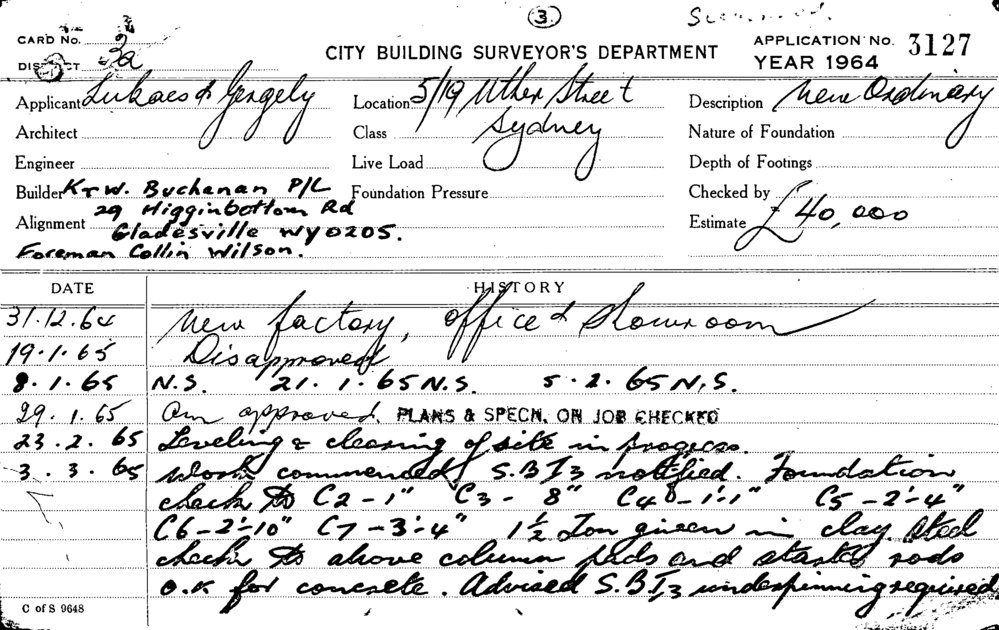 3.
CARD NO.
DISTRICT 3a
CITY BUILDING SURVEYOR'S DEPARTMENT
APPLICATION No. 3127
YEAR 1964
Applicant Lukacs & Gergely
Location 5/19 Uther Street
Sydney
Description New Ordinary
Architect
Class
Nature of Foundation
Engineer
Live Load
Depth of Footings
Builder K & W. Buchanan P/L
29 Higginbottom Rd
Foundation Pressure
Checked by
Alignment
Gladesville WY0205.
Foreman Collin Wilson.
Estimate £40,000
DATE HISTORY
31.12.64 New factory, office & showroom
19.1.65 Disapproved
8.1.65 N.S. 21.1.65 N.S. 5.2.65 N.S.
29.1.65 Am approved. PLANS & SPECN. ON JOB CHECKED
23.2.65 Leveling & clearing of site in progress.
3.3.65 Work commenced S.B.I/3 notified. Foundation
check to C2-1" C3-8" C4-1'-1" C5-2'-4"
C6-2'-10" C7-3'-4" 1½ Ton given in clay. Steel
check to above column pads and starter rods
O.K for concrete. Advised S.B.I/3 underpinning required
C of S 9648